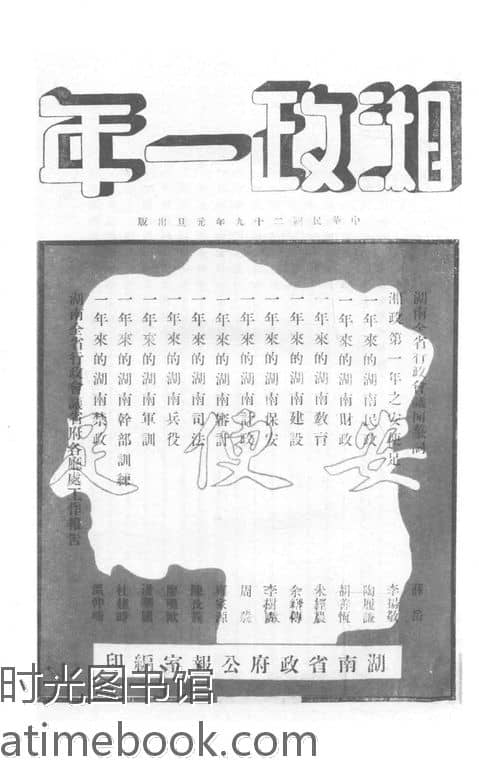 湘政一年
中華民國二十九年元旦出版
湘政第一年之安便足
一年來的湖南民政
一年來的湖南財政
一年來的湖南教育
一年來的湖南建設
一年來的湖南保安
一年來的湖南計政
一年來的湖南審計
一年來的湖南司法
一年來的湖南兵役
一年來的湖南軍訓
一年來的湖南幹部訓練
一年來的湖南禁政
湖南全省行政會議省府各廳處工作報告
安便足
薛岳
李揚敬
陶履謙
胡善恆
朱經農
余籍傳
李樹森
周
湖南省政府公報室編印
时光图书馆
atimebook.com